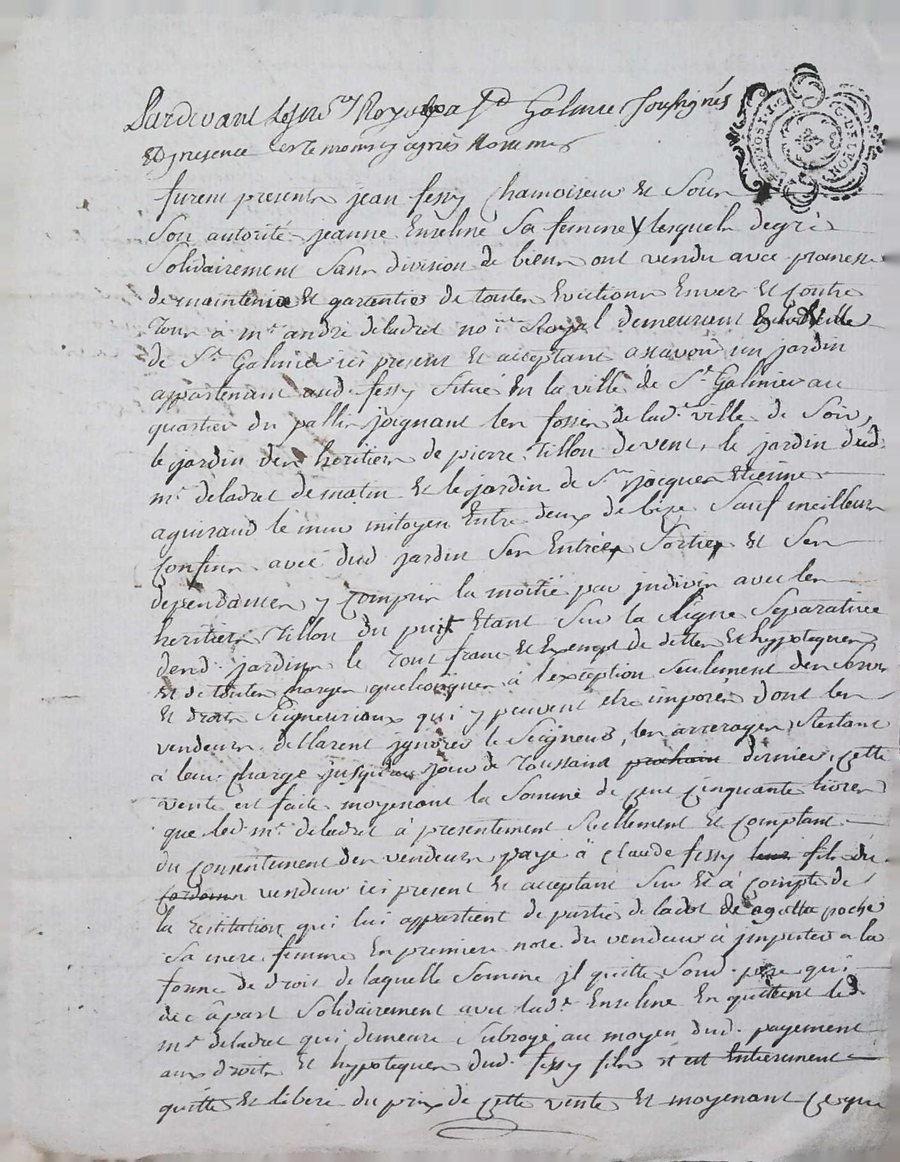 Pardevant les no.res Royaux a St Galmier soussignés
Et presence des temoins cy après Nommés
furent presents jean fessy Chamoiseur et sous
Son autorité jeanne Enseline Sa femme lesquels de gré
Solidairement sans division de biens ont vendu avec promesse
de maintenir et garantie de toutes Evictions Envers et Contre
Tous à mr andré deladret no.re Royal demeurant ville
de St Galmier ici present et acceptant asavoir un jardin
appartenant aud. fessy situé En la ville de St Galmier au
quartier du joignant les fossés de lad.e ville de Soir,
le jardin des heritiers de pierre Tillon de vent, le jardin dud.
mr deladret de matin et le jardin de Sr jacques Etienne
aguiraud le mur mitoyen Entre deux de bize Sauf meilleurs
Confins avec dud jardin Ses Entrées, Sorties et Ses
dependances y Compris la moitié par indivis avec les
heritiers Tillon du puit Etant Sur la Ligne Separative
desd. jardins le Tout franc et Exempt de dettes et hypoteques
et de toutes charges quelconques à l'exception seulement des Cens
et droits Seigneuriaux qui y peuvent etre imposés dont les
vendeurs dellarent ignorer le Seigneur, les arrerages, Restant
à leur charge jusqu'au jour de Toussaint prochain dernier, Cette
vente est faite moyenant la Somme de Cent Cinquante livres
que led mr deladret à presentement Reellement et Comptant
du Consentement des vendeurs payé à Claude fessy leur fils du
vendeur ici present et acceptant Sur et à Compte de
la restitution qui lui appartient de partie de la dot de agotta poche
Sa mere femme En premiere noce du vendeur à jmputer a la
forme de droit de laquelle Somme jl quitte Sond. pere qui
de à part Solidairement avec lad.e Enseline En quittent led
mr deladret qui demeure Subrogé au moyen dud. payement
aux droits et hypoteques dud. fessy fils et est Entierement
quitte et liberé du prix de Cette vente et moyenant Ce que